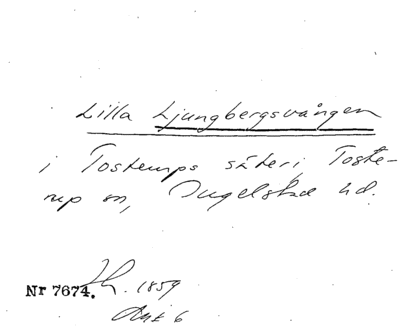 Lilla Ljungbergsvången
i Tosterups säteri, Toste-
rup sn, Ingelstad hd.
Nr 7674. 1859
Akt 6